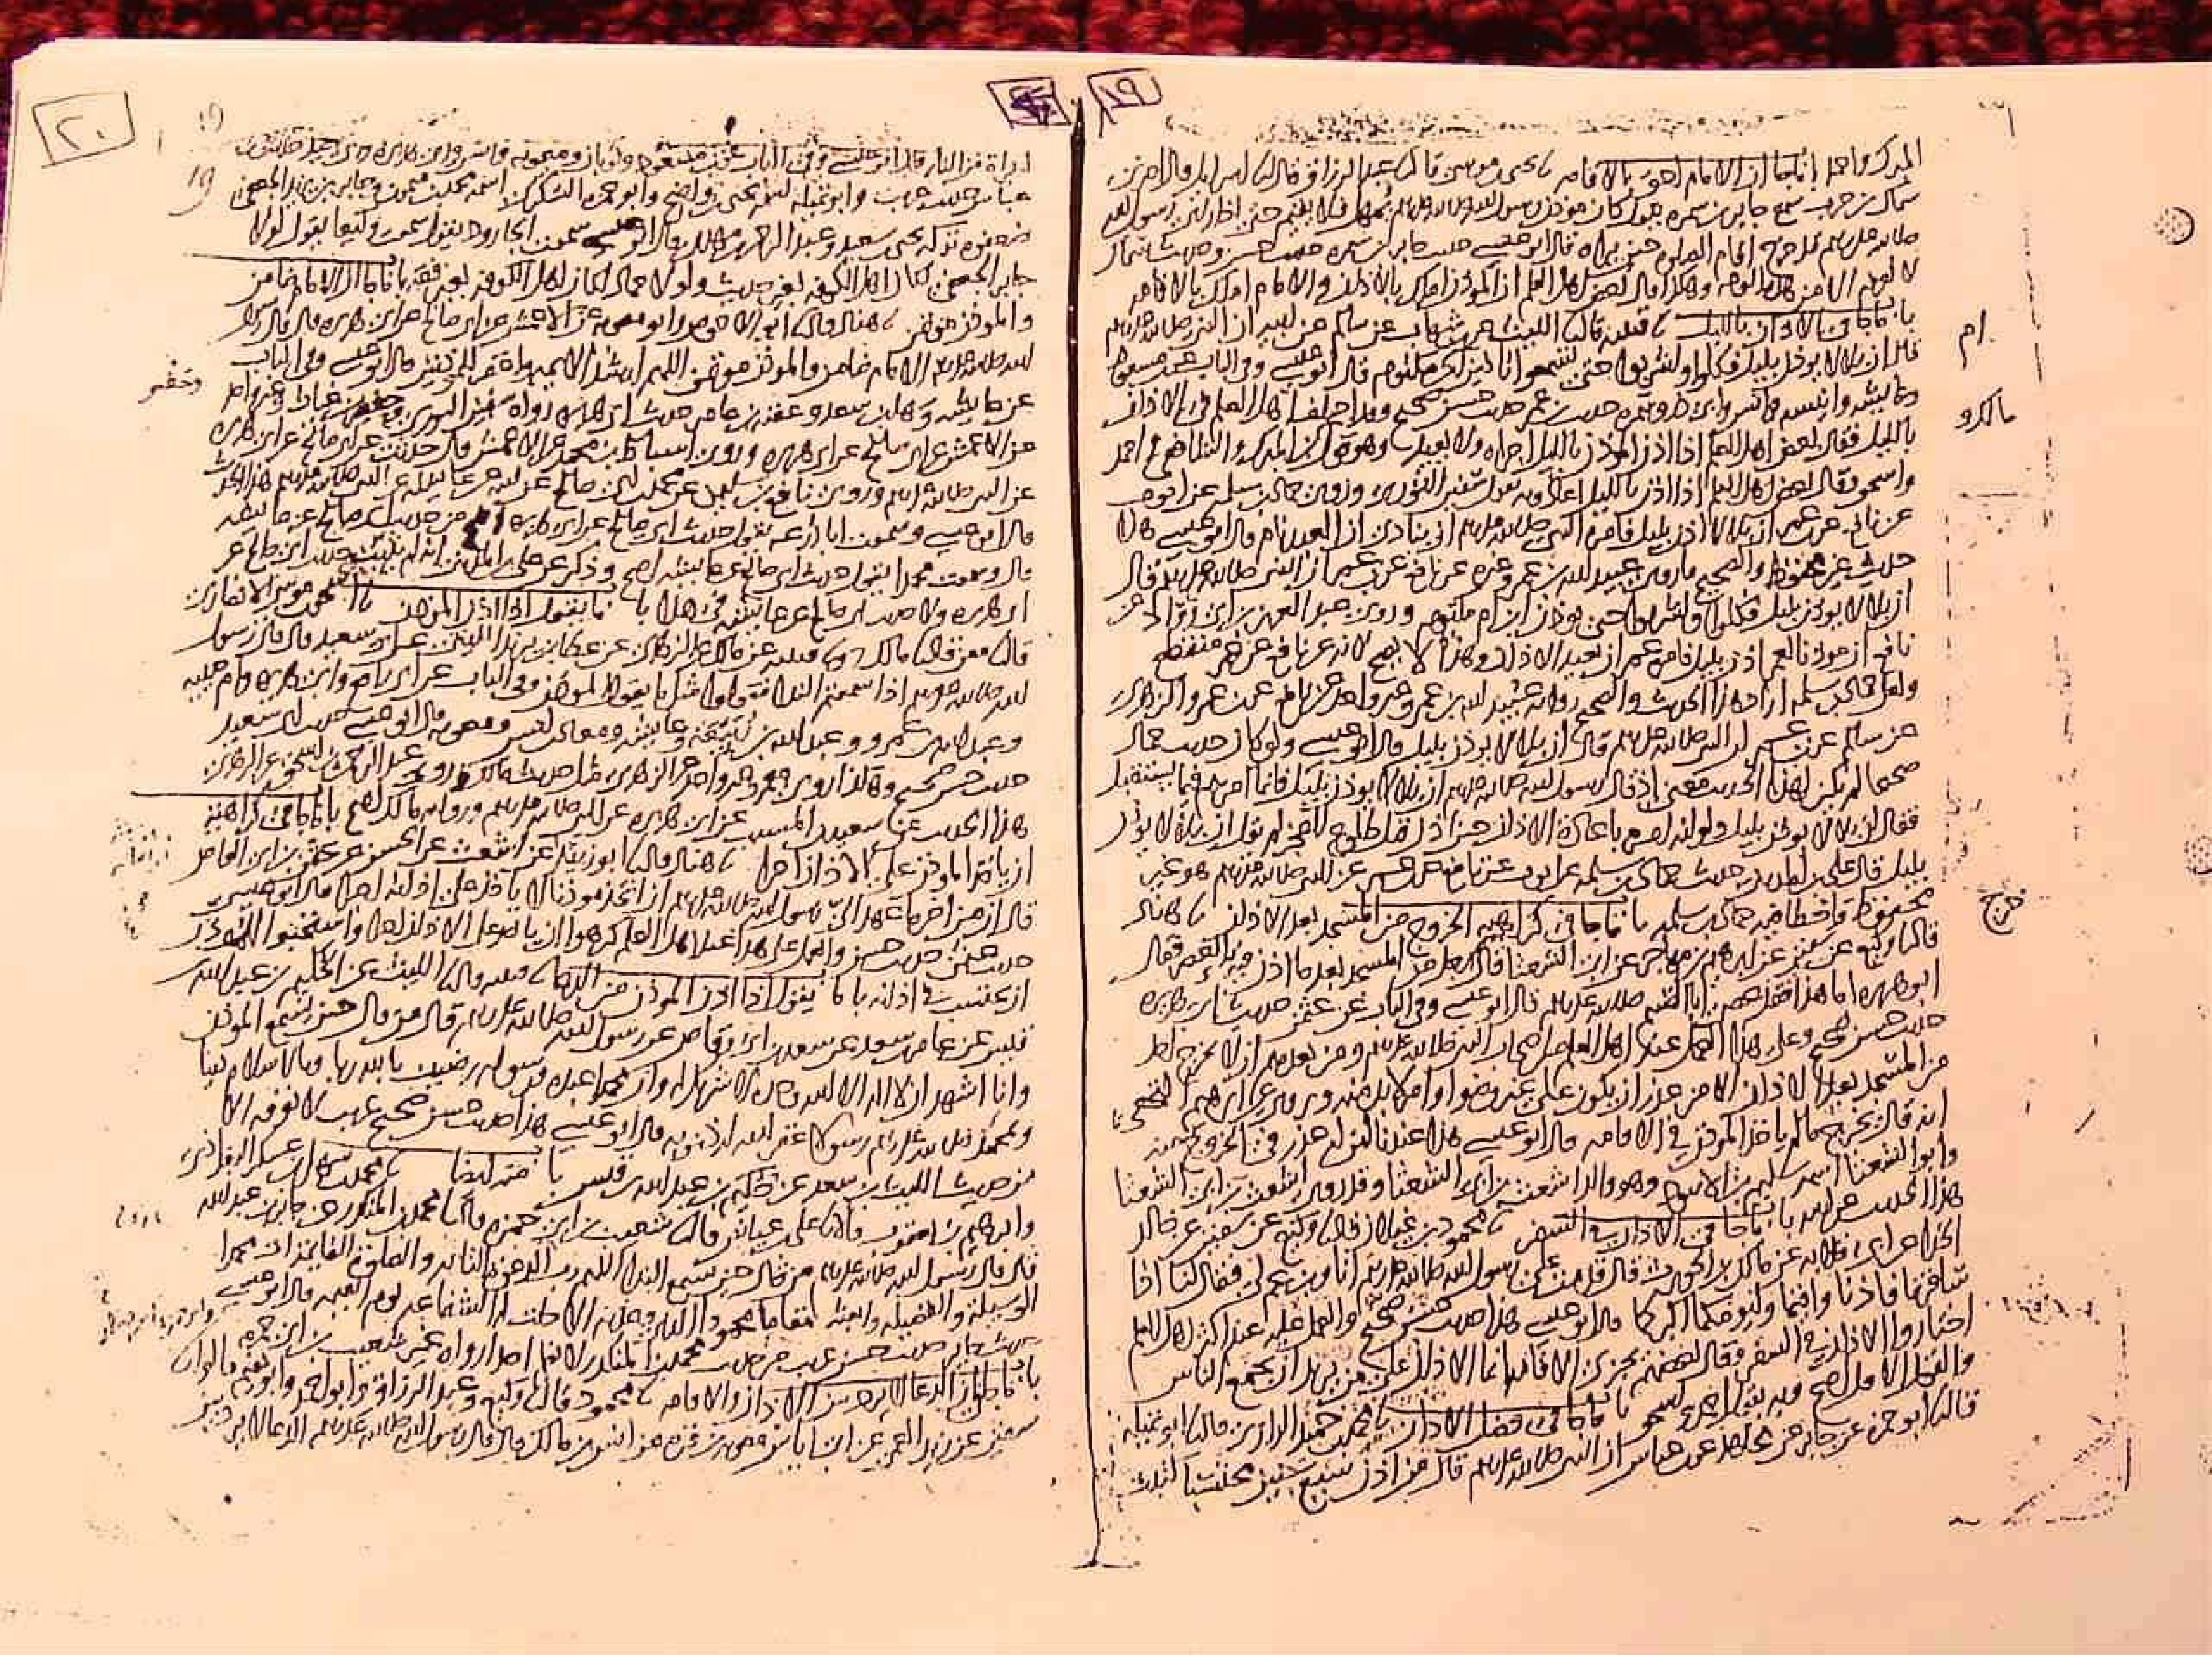 ١٩
المبرك واحمد باب ما جا ان الامام احق بالاقامه نا يحيى بن موسى قال نا عبد الرزاق قال نا اسرايل قال اخبرني
سماك بن حرب سمع جابر بن سمره يقول كان موذن رسول الله صلى الله عليه وسلم يمهل فلا يقيم حتى اذا راى رسول الله
صلى الله عليه وسلم قد خرج اقام الصلوه حين يراه قال ابو عيسى حديث جابر بن سمره حديث حسن وحديث سماك
لا نعرفه الا من هذا الوجه وهكذا قال بعض اهل العلم ان الموذن املك بالاذان والامام املك بالاقامه
باب ما جا في الاذان بالليل نا قتيبه قال نا الليث عن شهاب عن سالم عن ابيه ان النبي صلى الله عليه وسلم
قال ان بلالا يوذن بليل فكلوا واشربوا حتى تسمعوا تاذين ابن مكتوم قال ابو عيسى وفي الباب عن مسعود
وعايشه وانيسه وانس وابي ذر وسمره حديث عمر حديث حسن صحيح وقد اختلف اهل العلم في الاذان
بالليل فقال بعض اهل العلم اذا اذن الموذن بالليل اجزاه ولا يعيد وهو قول ابن المبرك والشافعي واحمد
واسحق وقال بعض اهل العلم اذا اذن بالليل اعاد وبه يقول سفين الثوري وروى حماد بن سلمه عن ايوب
عن نافع عن عمر ان بلالا اذن بليل فامره النبي صلى الله عليه وسلم ان ينادي ان العبد نام قال ابو عيسى هذا
حديث غير محفوظ والصحيح ما روى عبيد الله بن عمر وغيره عن نافع عن عمر ان النبي صلى الله عليه وسلم قال
ان بلالا يوذن بليل فكلوا واشربوا حتى يوذن ابن ام مكتوم وروى عبد العزيز بن ابي رواد عن
نافع ان موذنا لعمر اذن بليل فامره عمر ان يعيد الاذان وهذا لا يصح لانه عن نافع عن عمر منقطع
ولعل حماد بن سلمه اراد هذا الحديث والصحيح روايه عبيد الله بن عمر وغير واحد عن نافع عن عمر والزهري
عن سالم عن عمر ان النبي صلى الله عليه وسلم قال ان بلالا يوذن بليل قال ابو عيسى ولو كان حديث حماد
صحيحا لم يكن لهذا الحديث معنى اذ قال رسول الله صلى الله عليه وسلم ان بلالا يوذن بليل فانما امرهم فيما يستقبل
فقال ان بلالا يوذن بليل ولو انه امره باعادة الاذان حين اذن قبل طلوع الفجر لم يقل ان بلالا يوذن
بليل قال علي بن المديني حديث حماد بن سلمه عن ايوب عن نافع عن عمر عن النبي صلى الله عليه وسلم هو غير
محفوظ واخطا فيه حماد بن سلمه باب ما جا في كراهيه الخروج من المسجد بعد الاذان نا هناد
قال نا وكيع عن سفين عن ابرهيم بن مهاجر عن ابي الشعثا قال خرج رجل من المسجد بعد ما اذن فيه بالعصر فقال
ابو هريره اما هذا فقد عصى ابا القسم صلى الله عليه وسلم قال ابو عيسى وفي الباب عن عثمن حديث ابي هريره
حديث حسن صحيح وعلى هذا العمل عند اهل العلم من اصحاب النبي صلى الله عليه وسلم ومن بعدهم ان لا يخرج احد
من المسجد بعد الاذان الا من عذر ان يكون على غير وضوا وامر لا بد منه ويروى عن ابرهيم النخعي
انه قال يخرج ما لم ياخذ الموذن في الاقامه قال ابو عيسى هذا عندنا لمن له عذر في الخروج منه
وابو الشعثا اسمه سليم بن الاسود وهو والد اشعث بن ابي الشعثا وقد روى اشعث بن ابي الشعثا
هذا الحديث عن ابيه باب ما جا في الاذان في السفر نا محمود بن غيلان قال نا وكيع عن سفين عن خالد
الحذا عن ابي قلابه عن مالك بن الحويرث قال قدمت على رسول الله صلى الله عليه وسلم انا وابن عم لي فقال لنا اذا
سافرتما فاذنا واقيما وليومكما اكبركما قال ابو عيسى هذا حديث حسن صحيح والعمل عليه عند اكثر اهل العلم
اختاروا الاذان في السفر وقال بعضهم يجزي الاقامه انما الاذان على من يريد ان يجمع الناس
والقول الاول اصح وبه يقول احمد واسحق باب ما جا في فضل الاذان نا محمد بن حميد الرازي قال نا ابو تميله
قال نا ابو حمزه عن جابر عن مجاهد عن عباس ان النبي صلى الله عليه وسلم قال من اذن سبع سنين محتسبا كتبت
ام
مالك و
خرج
٢٠
19
له براة من النار قال ابو عيسى وفي الباب عن مسعود وثوبان ومعويه وانس وابي هريره وابي سعيد حديث
عباس حديث غريب وابو تميله اسمه يحيى بن واضح وابو حمزه السكري اسمه محمد بن ميمون وجابر بن يزيد الجعفي
ضعفوه تركه يحيى بن سعيد وعبد الرحمن بن مهدي قال ابو عيسى سمعت الجارود يقول سمعت وكيعا يقول لولا
جابر الجعفي لكان اهل الكوفه بغير حديث ولولا حماد لكان اهل الكوفه بغير فقه باب ما جا ان الامام ضامن
والموذن موتمن نا هناد قال نا ابو الاحوص وابو معويه عن الاعمش عن ابي صالح عن ابي هريره قال قال رسول
الله صلى الله عليه وسلم الامام ضامن والموذن موتمن اللهم ارشد الايمه واغفر للموذنين قال ابو عيسى وفي الباب
عن عايشه وسهل بن سعد وعقبه بن عامر حديث ابي هريره رواه سفين الثوري وحفص بن غياث وغير واحد
عن الاعمش عن ابي صالح عن ابي هريره وروى اسباط بن محمد عن الاعمش قال حدثت عن ابي صالح عن ابي هريره
عن النبي صلى الله عليه وسلم وروى نافع بن سليمن عن محمد بن ابي صالح عن ابيه عن عايشه عن النبي صلى الله عليه وسلم هذا الحديث
قال ابو عيسى وسمعت ابا زرعه يقول حديث ابي صالح عن ابي هريره اصح من حديث ابي صالح عن عايشه
قال وسمعت محمدا يقول حديث ابي صالح عن عايشه اصح وذكر عن علي بن المديني انه لم يثبت حديث ابي صالح عن
ابي هريره ولا حديث ابي صالح عن عايشه في هذا باب ما يقول اذا اذن الموذن نا اسحق بن موسى الانصاري
قال نا معن قال نا مالك ونا قتيبه عن مالك عن الزهري عن عطا بن يزيد الليثي عن ابي سعيد قال قال رسول
الله صلى الله عليه وسلم اذا سمعتم الندا فقولوا مثل ما يقول الموذن وفي الباب عن ابي رافع وابي هريره وام حبيبه
وعبد الله بن عمرو وعبد الله بن ربيعه وعايشه ومعاذ بن انس ومعويه قال ابو عيسى حديث ابي سعيد
حديث حسن صحيح وهكذا روى معمر وغير واحد عن الزهري مثل حديث مالك وروى عبد الرحمن بن اسحق عن الزهري
هذا الحديث عن سعيد بن المسيب عن ابي هريره عن النبي صلى الله عليه وسلم وروايه مالك اصح باب ما جا في كراهيه
ان ياخذ الموذن على الاذان اجرا نا هناد قال نا ابو زبيد عن اشعث عن الحسن عن عثمن بن ابي العاص
قال ان من اخر ما عهد الي رسول الله صلى الله عليه وسلم ان اتخذ موذنا لا ياخذ على اذانه اجرا قال ابو عيسى
حديث عثمن حديث حسن والعمل على هذا عند اهل العلم كرهوا ان ياخذ على الاذان اجرا واستحبوا للموذن
ان يحتسب في اذانه باب ما يقول اذا اذن الموذن من الدعا نا قتيبه قال نا الليث عن الحكيم بن عبد الله
بن قيس عن عامر بن سعد عن سعد بن ابي وقاص عن رسول الله صلى الله عليه وسلم قال من قال حين يسمع الموذن
وانا اشهد ان لا اله الا الله وحده لا شريك له وان محمدا عبده ورسوله رضيت بالله ربا وبالاسلام دينا
وبمحمد صلى الله عليه وسلم رسولا غفر الله له ذنوبه قال ابو عيسى هذا حديث حسن صحيح غريب لا نعرفه الا
من حديث الليث بن سعد عن حكيم بن عبد الله بن قيس باب منه ايضا نا محمد بن سهل بن عسكر البغدادي
وابرهيم بن يعقوب قالا نا علي بن عياش قال نا شعيب بن ابي حمزه قال نا محمد بن المنكدر عن جابر بن عبد الله
قال قال رسول الله صلى الله عليه وسلم من قال حين يسمع الندا اللهم رب هذه الدعوه التامه والصلوه القايمه ات محمدا
الوسيله والفضيله وابعثه مقاما محمودا الذي وعدته الا حلت له الشفاعه يوم القيمه قال ابو عيسى
حديث جابر حديث حسن غريب من حديث محمد بن المنكدر لا نعلم احدا رواه غير شعيب بن ابي حمزه
باب ما جا ان الدعا لا يرد بين الاذان والاقامه نا محمود قال نا وكيع وعبد الرزاق وابو احمد وابو نعيم قالوا نا
سفين عن زيد العمي عن ابي اياس معويه بن قره عن انس بن مالك قال قال رسول الله صلى الله عليه وسلم الدعا لا يرد بين
وحفص